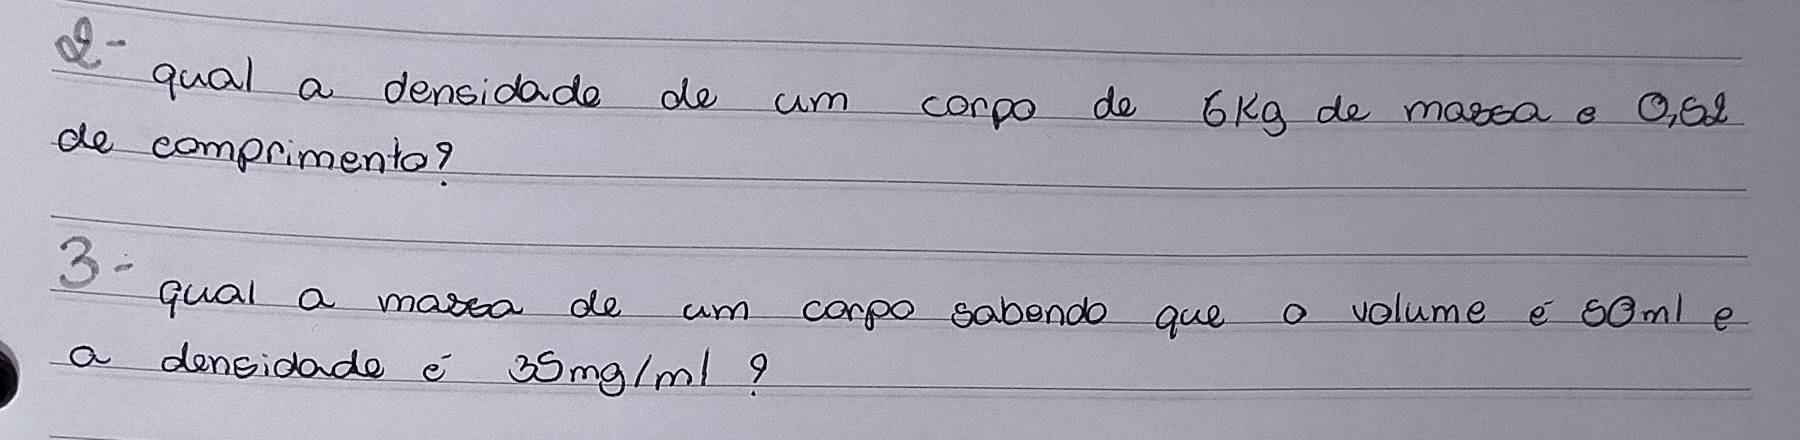 2- qual a densidade de um corpo de 6Kg de massa e 0,5l
de comprimento?
3- qual a massa de um corpo sabendo que o volume é 50ml e
a densidade é 35mg/ml ?